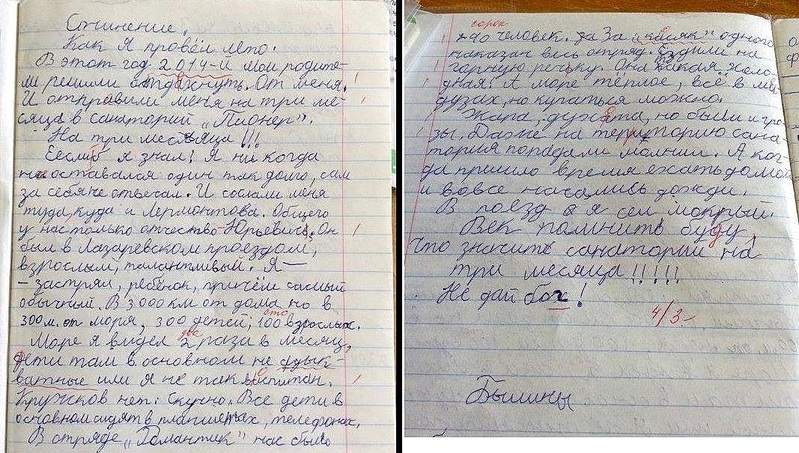 Сочинение.
Как я провёл лето.
В этот год 2014-й мои родите-
ли решили отдахнуть. От меня.
И отправили меня на три ме-
сяца в санаторий „Пионер".
На три месяца!!!
Еесли б я знал! Я ни когда
не оставался один так долго, сам
за себя не отвечал. И сослали меня
туда, куда и Лермонтова. Общего
у нас только отчество - Юрьевич. Он
был в Лазаревском проездом,
взрослый, талантливый. Я -
- застрял, ребёнок, причём самый
обычный. В 3000 км от дома но в
сто
300 м. от моря, 300 детей, 100 взрослых.
два
Море я видел 2 раза в месяц,
дети там в основном не адык-
ватные или я не так воспитан.
Кружков нет. Скучно. Все дети в
основном сидят в планшетах, телефонах.
В отряде „Романтик" нас было
сорок
40 человек. За за „касяк" одного
наказан весь отряд. Будили на
горную речьку. Она такая холо-
дная! А море тёплое, всё в ме-
дузах, но купаться можно.
Жара, духота, но были и гро-
зы. Даже на территорию сана-
тория попадали молнии. А ког-
да пришло время ехать домой
и вовсе начались дожди.
В поезд я сел мокрый.
Век помнить буду,
что значить санаторий на
три месяца!!!!!!
Не дай бог!
4/3-
Былины